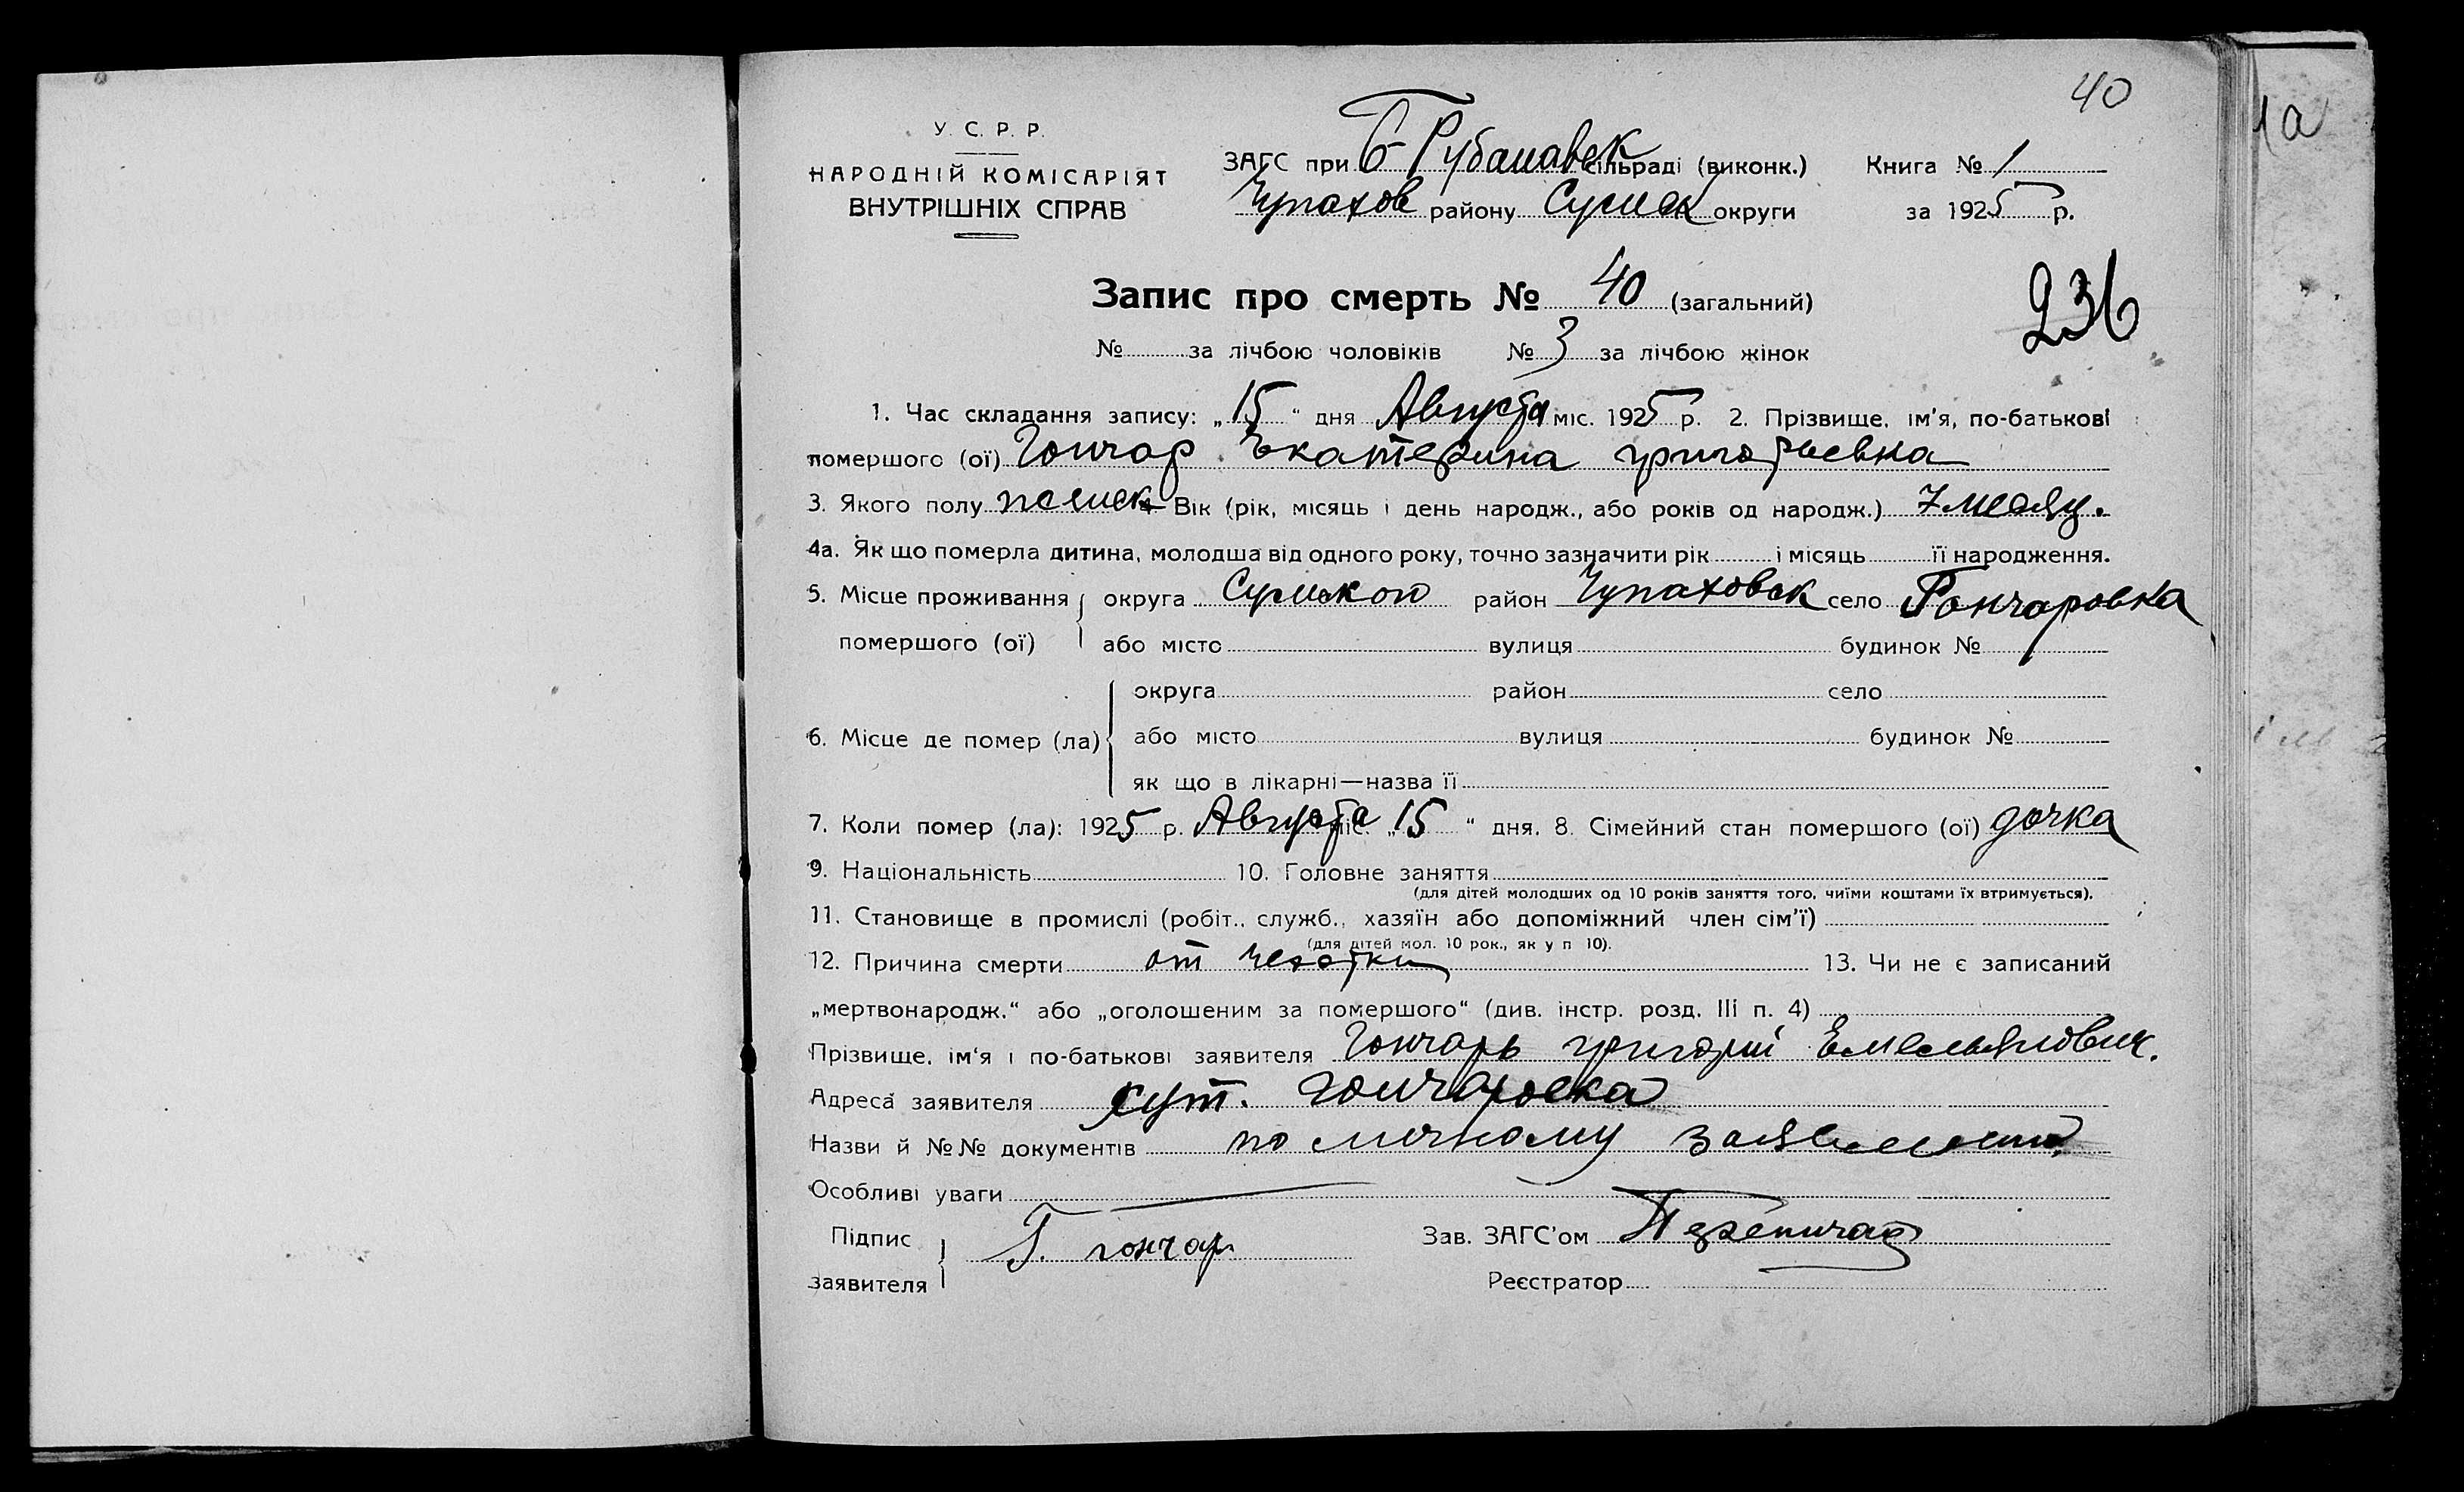 40
1а
У. С. Р. Р.
НАРОДНІЙ КОМІСАРІЯТ
ВНУТРІШНІХ СПРАВ
ЗАГС при Б-Рубановск сільраді (виконк.) Книга № 1
Чупахов району Сумск округи за 1925 р.
Запис про смерть № 40 (загальний)
236
№ за лічбою чоловіків № 3 за лічбою жінок
1. Час складання запису: „15“ дня Августа міс. 1925 р. 2. Прізвище, ім'я, по-батькові
помершого (ої) Гончар Екатерина григорьевна
3. Якого полу женск 4. Вік (рік, місяць і день народж., або років од народж.) 7 месяц.
4а. Як що померла дитина, молодша від одного року, точно зазначити рік і місяць її народження.
5. Місце проживання округа Сумского район Чупаховск село Гончаровка
помершого (ої) або місто вулиця будинок №
округа район село
6. Місце де помер (ла) або місто вулиця будинок №
як що в лікарні—назва її
7. Коли помер (ла): 1925 р. Августа міс. „15“ дня. 8. Сімейний стан помершого (ої) дочка
9. Національність 10. Головне заняття
(для дітей молодших од 10 років заняття того, чиїми коштами їх втримується).
11. Становище в промислі (робіт., служб., хазяїн або допоміжний член сім'ї)
(для дітей мол. 10 рок., як у п 10).
12. Причина смерти от чесотки 13. Чи не є записаний
„мертвонародж.“ або „оголошеним за помершого“ (див. інстр. розд. III п. 4)
Прізвище, ім'я і по-батькові заявителя Гончарь григорий Емельянович.
Адреса заявителя хут. гончаровка
Назви й №№ документів по личному
Особливі уваги
Підпис Г. гончар Зав. ЗАГС'ом
заявителя Реєстратор